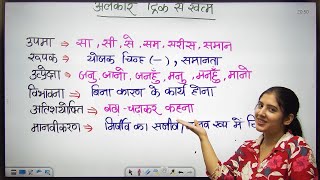 अलंकार ट्रिक से खत्म
उपमा ⇒ सा, सी, से, सम, सरीस, समान
रूपक ⇒ योजक चिन्ह (-), समानता
उत्प्रेक्षा ⇒ जनु, जानो, जनहुँ, मनु, मनहुँ, मानो
विभावना ⇒ बिना कारण के कार्य होना
अतिशयोक्ति ⇒ बढ़ा-चढ़ाकर कहना
मानवीकरण ⇒ निर्जीव का सजीव रूप में